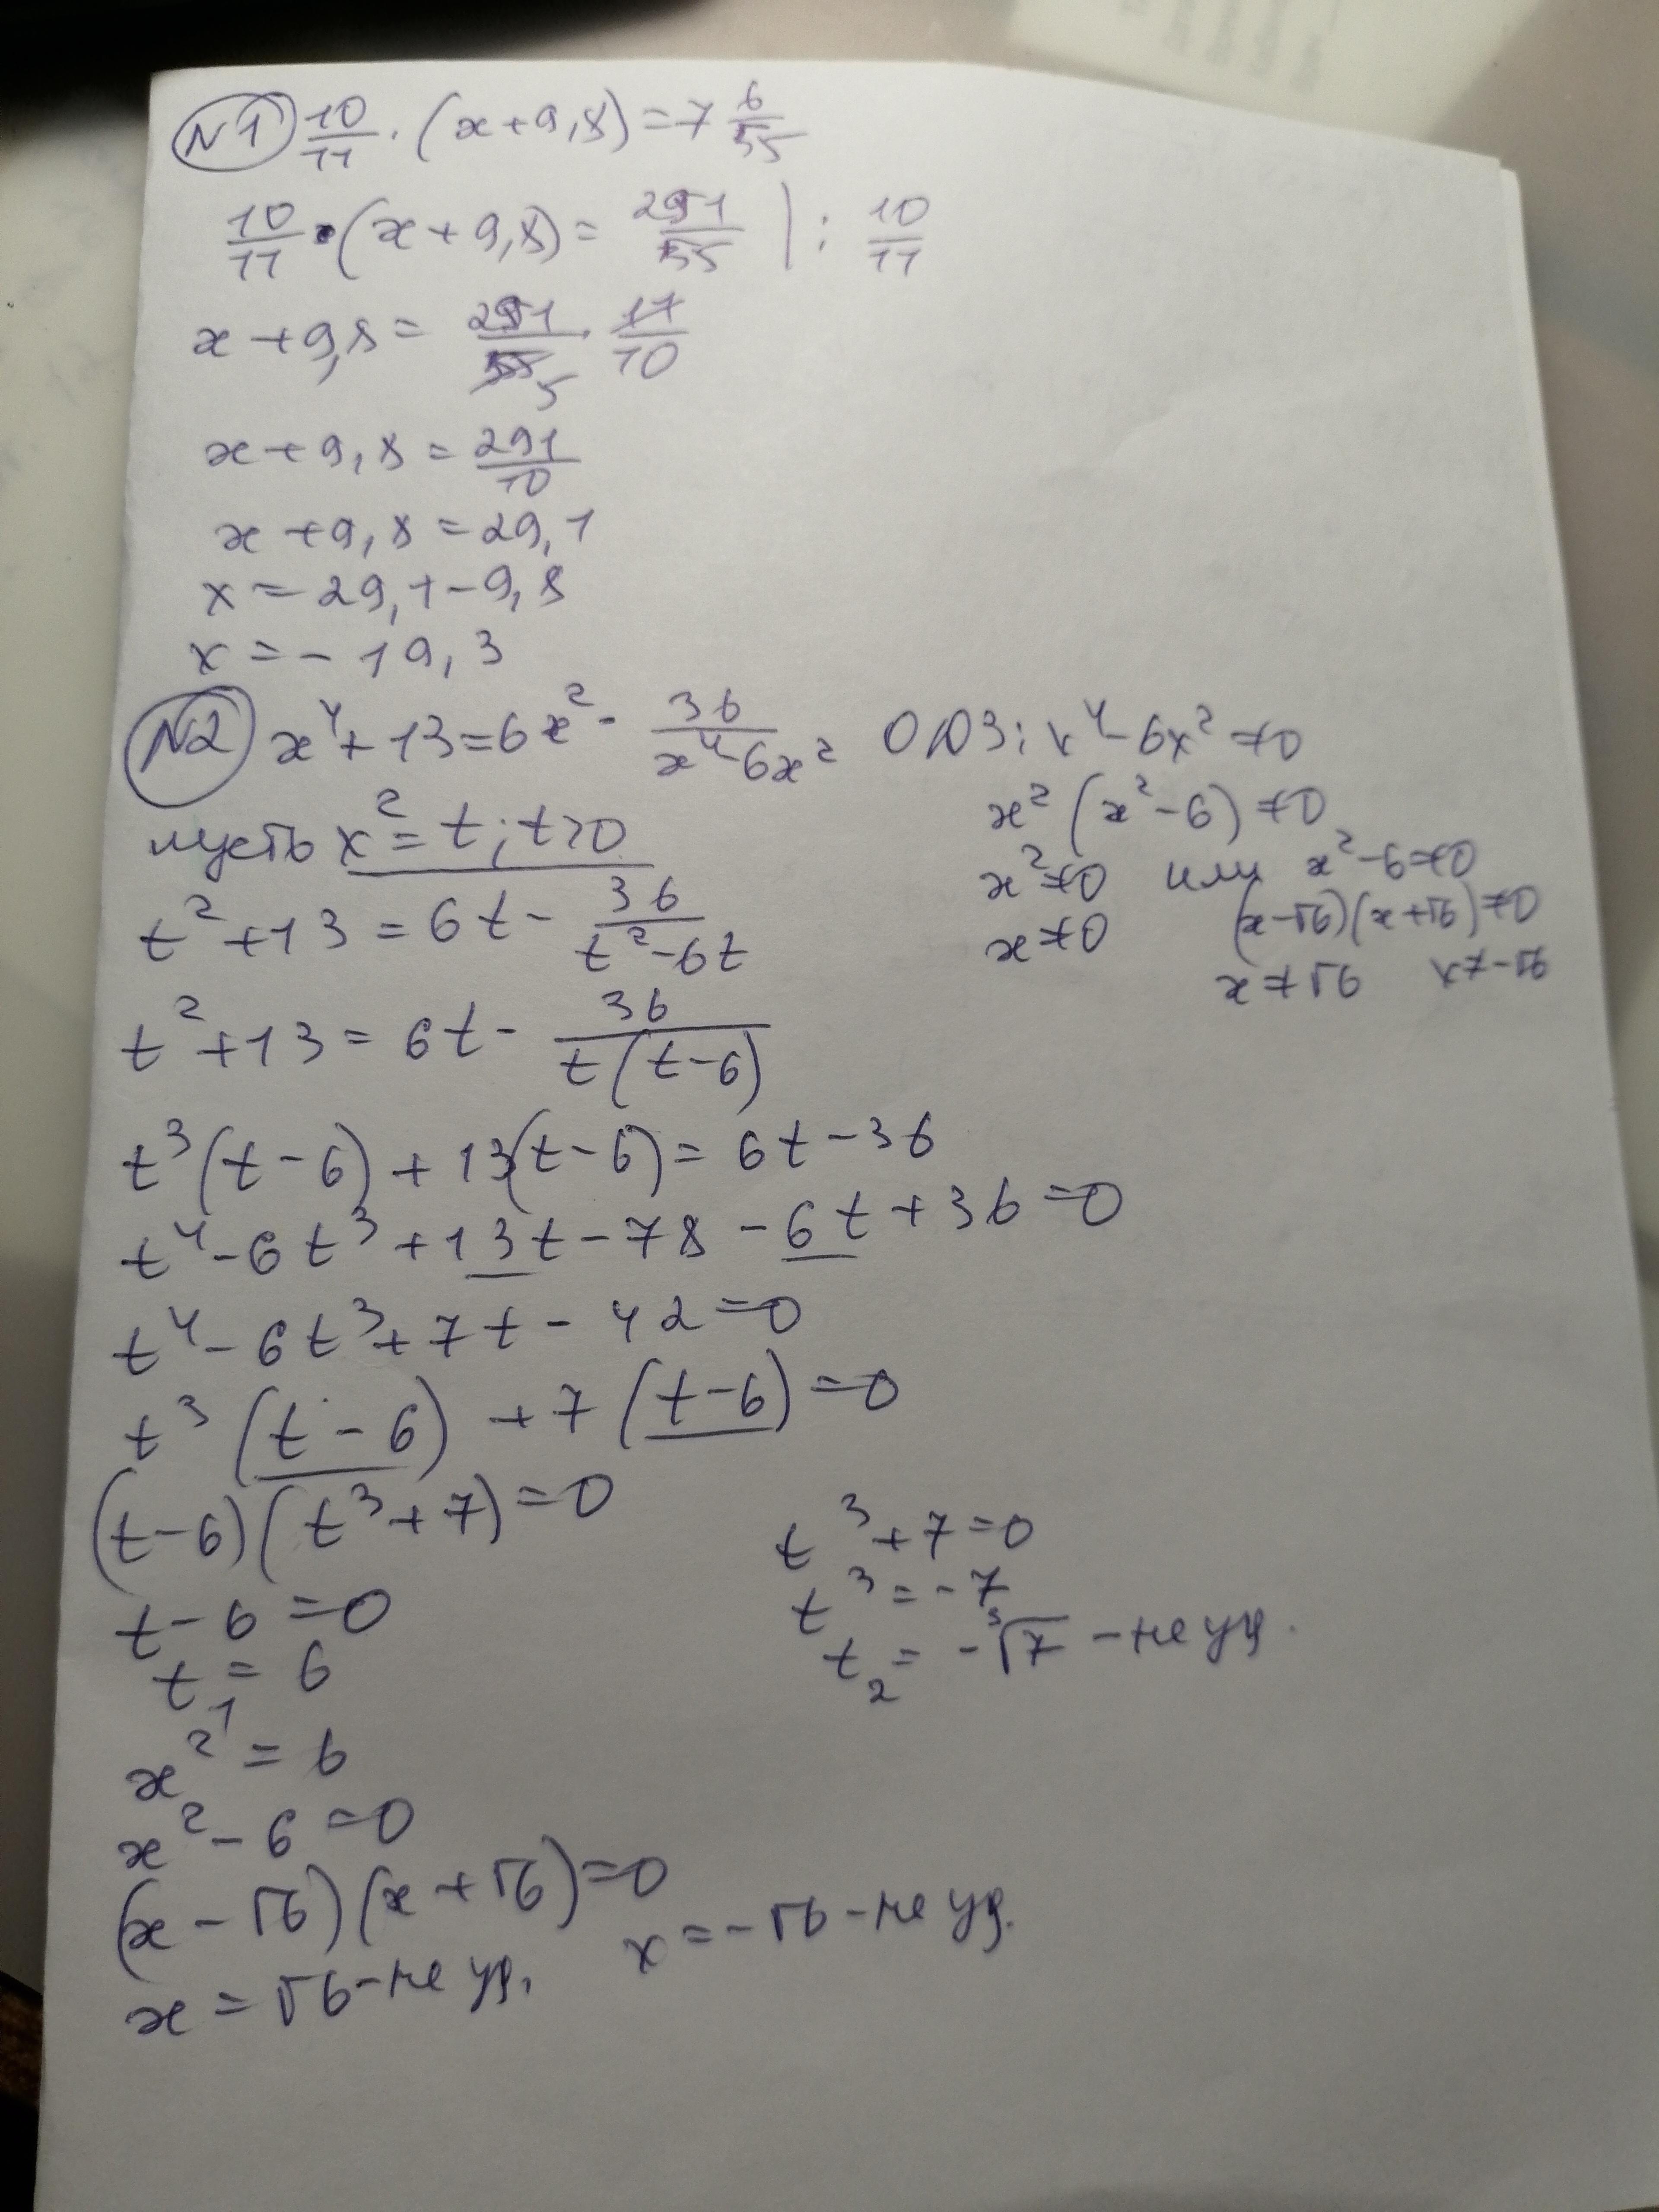 N1 10/11 · (x+9,8) = 7 6/55
10/11 · (x+9,8) = 291/55 | : 10/11
x+9,8 = 291/55 5 · 11/10
x+9,8 = 291/10
x+9,8 = 29,1
x = 29,1-9,8
x = - 19,3
N2 x⁴+13=6x² - 36/(x⁴-6x²) ОДЗ: x⁴-6x²≠0
x²(x²-6)≠0
пусть x²=t; t>0
x²≠0 или x²-6≠0
t²+13=6t - 36/(t²-6t)
x≠0 (x-√6)(x+√6)≠0
x≠√6 x≠-√6
t²+13=6t - 36/(t(t-6))
t³(t-6)+13(t-6)=6t-36
t⁴-6t³+13t-78-6t+36=0
t⁴-6t³+7t-42=0
t³(t-6)+7(t-6)=0
(t-6)(t³+7)=0
t³+7=0
t-6=0
t³=-7
t₁=6
t₂=-³√7 - не уд.
x²=6
x²-6=0
(x-√6)(x+√6)=0
x=√6-не уд. x=-√6-не уд.